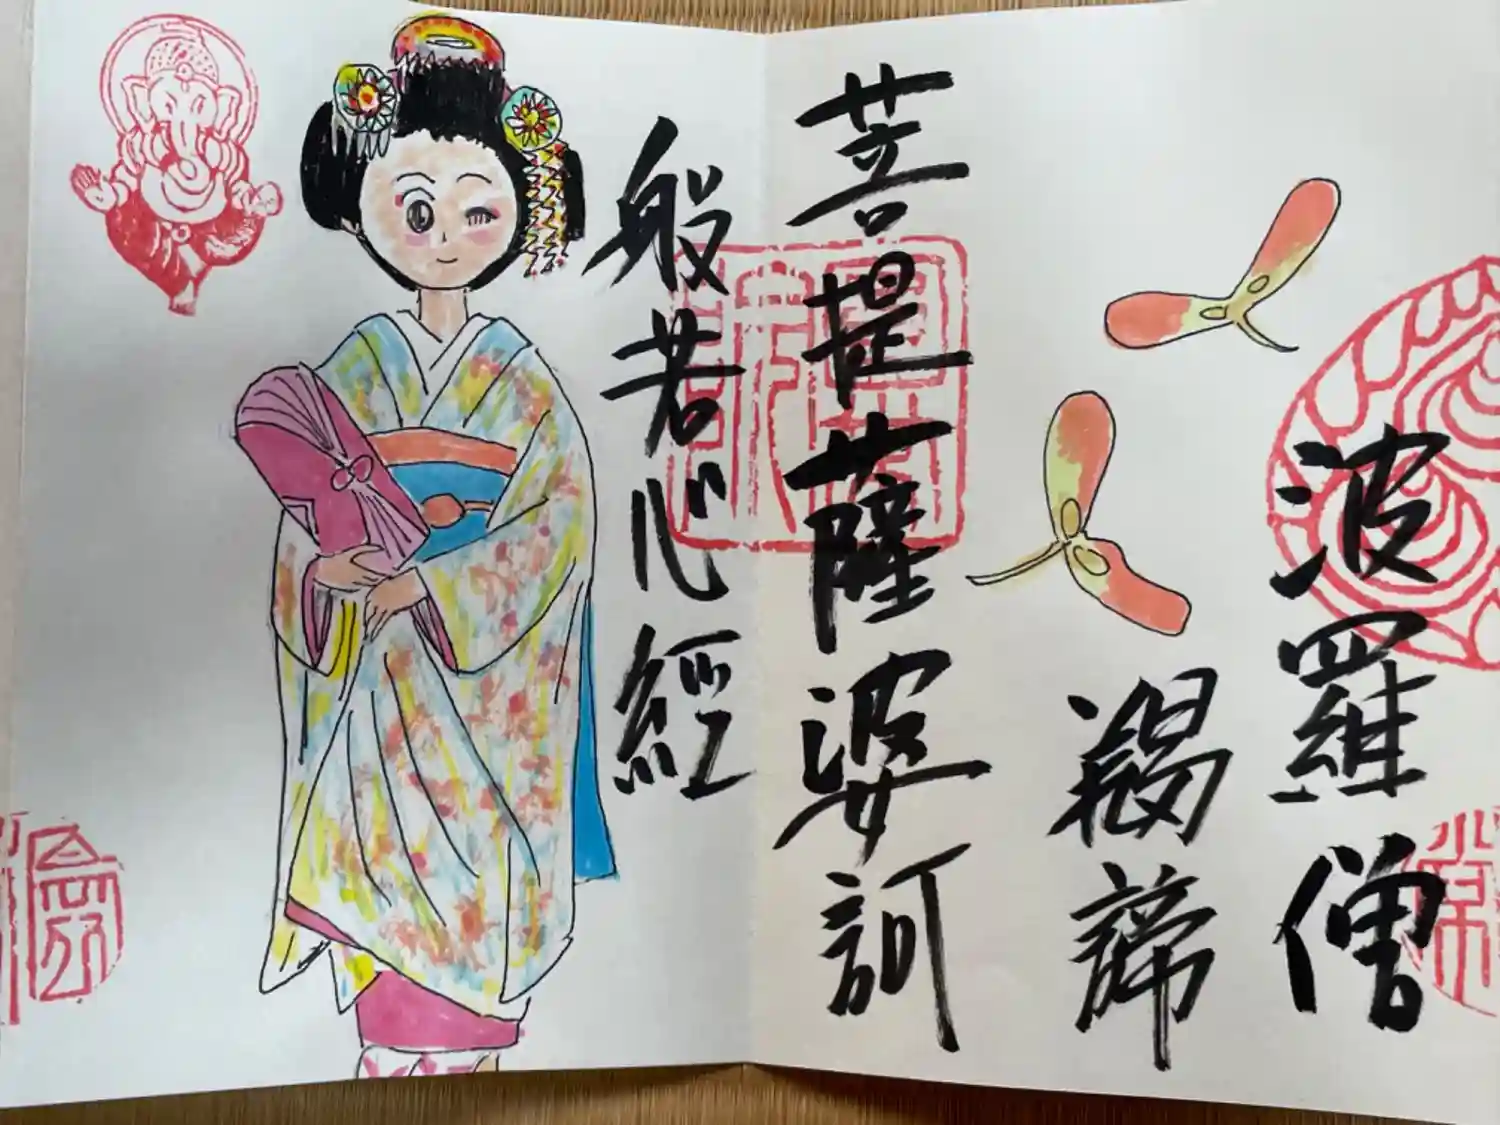 波羅僧
羯諦
菩提薩婆訶
般若心經